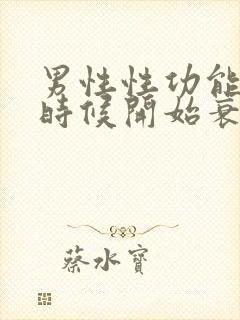 男性性功能
時候開始衰
蔡水寶